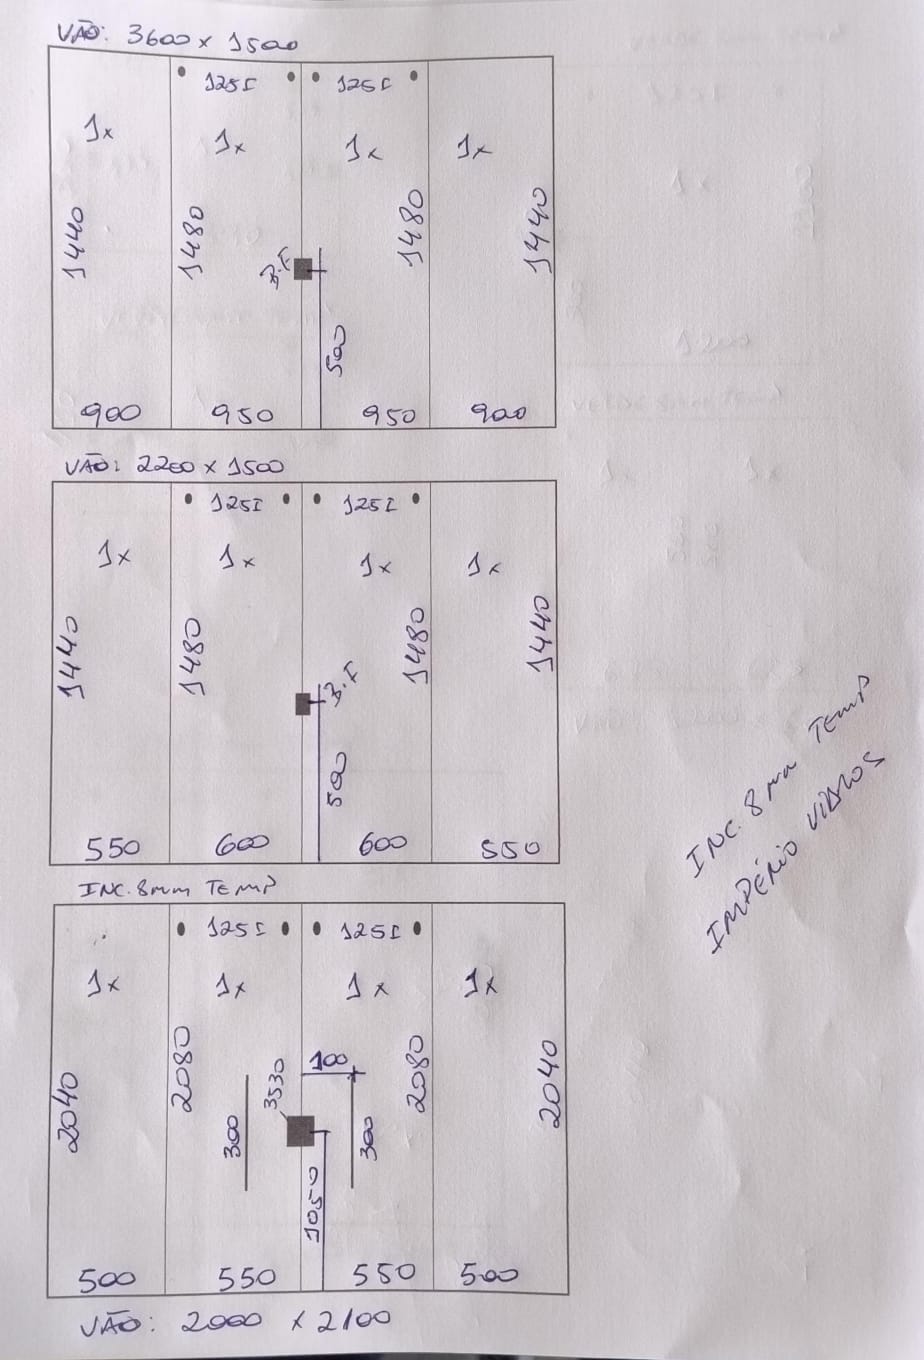 VÃO: 3600 x 1500
125I 125I
1x 1x 1x 1x
1440 1480 1480 1440
B.F
500
900 950 950 900
VÃO: 2200 x 1500
125I 125I
1x 1x 1x 1x
1440 1480 1480 1440
B.F
500
550 600 600 550
INC. 8mm TEMP
125I 125I
1x 1x 1x 1x
100
2040 2080 2080 2040
300 3530 300
1050
500 550 550 500
VÃO: 2000 x 2100
INC. 8mm TEMP
IMPÉRIO VIDROS